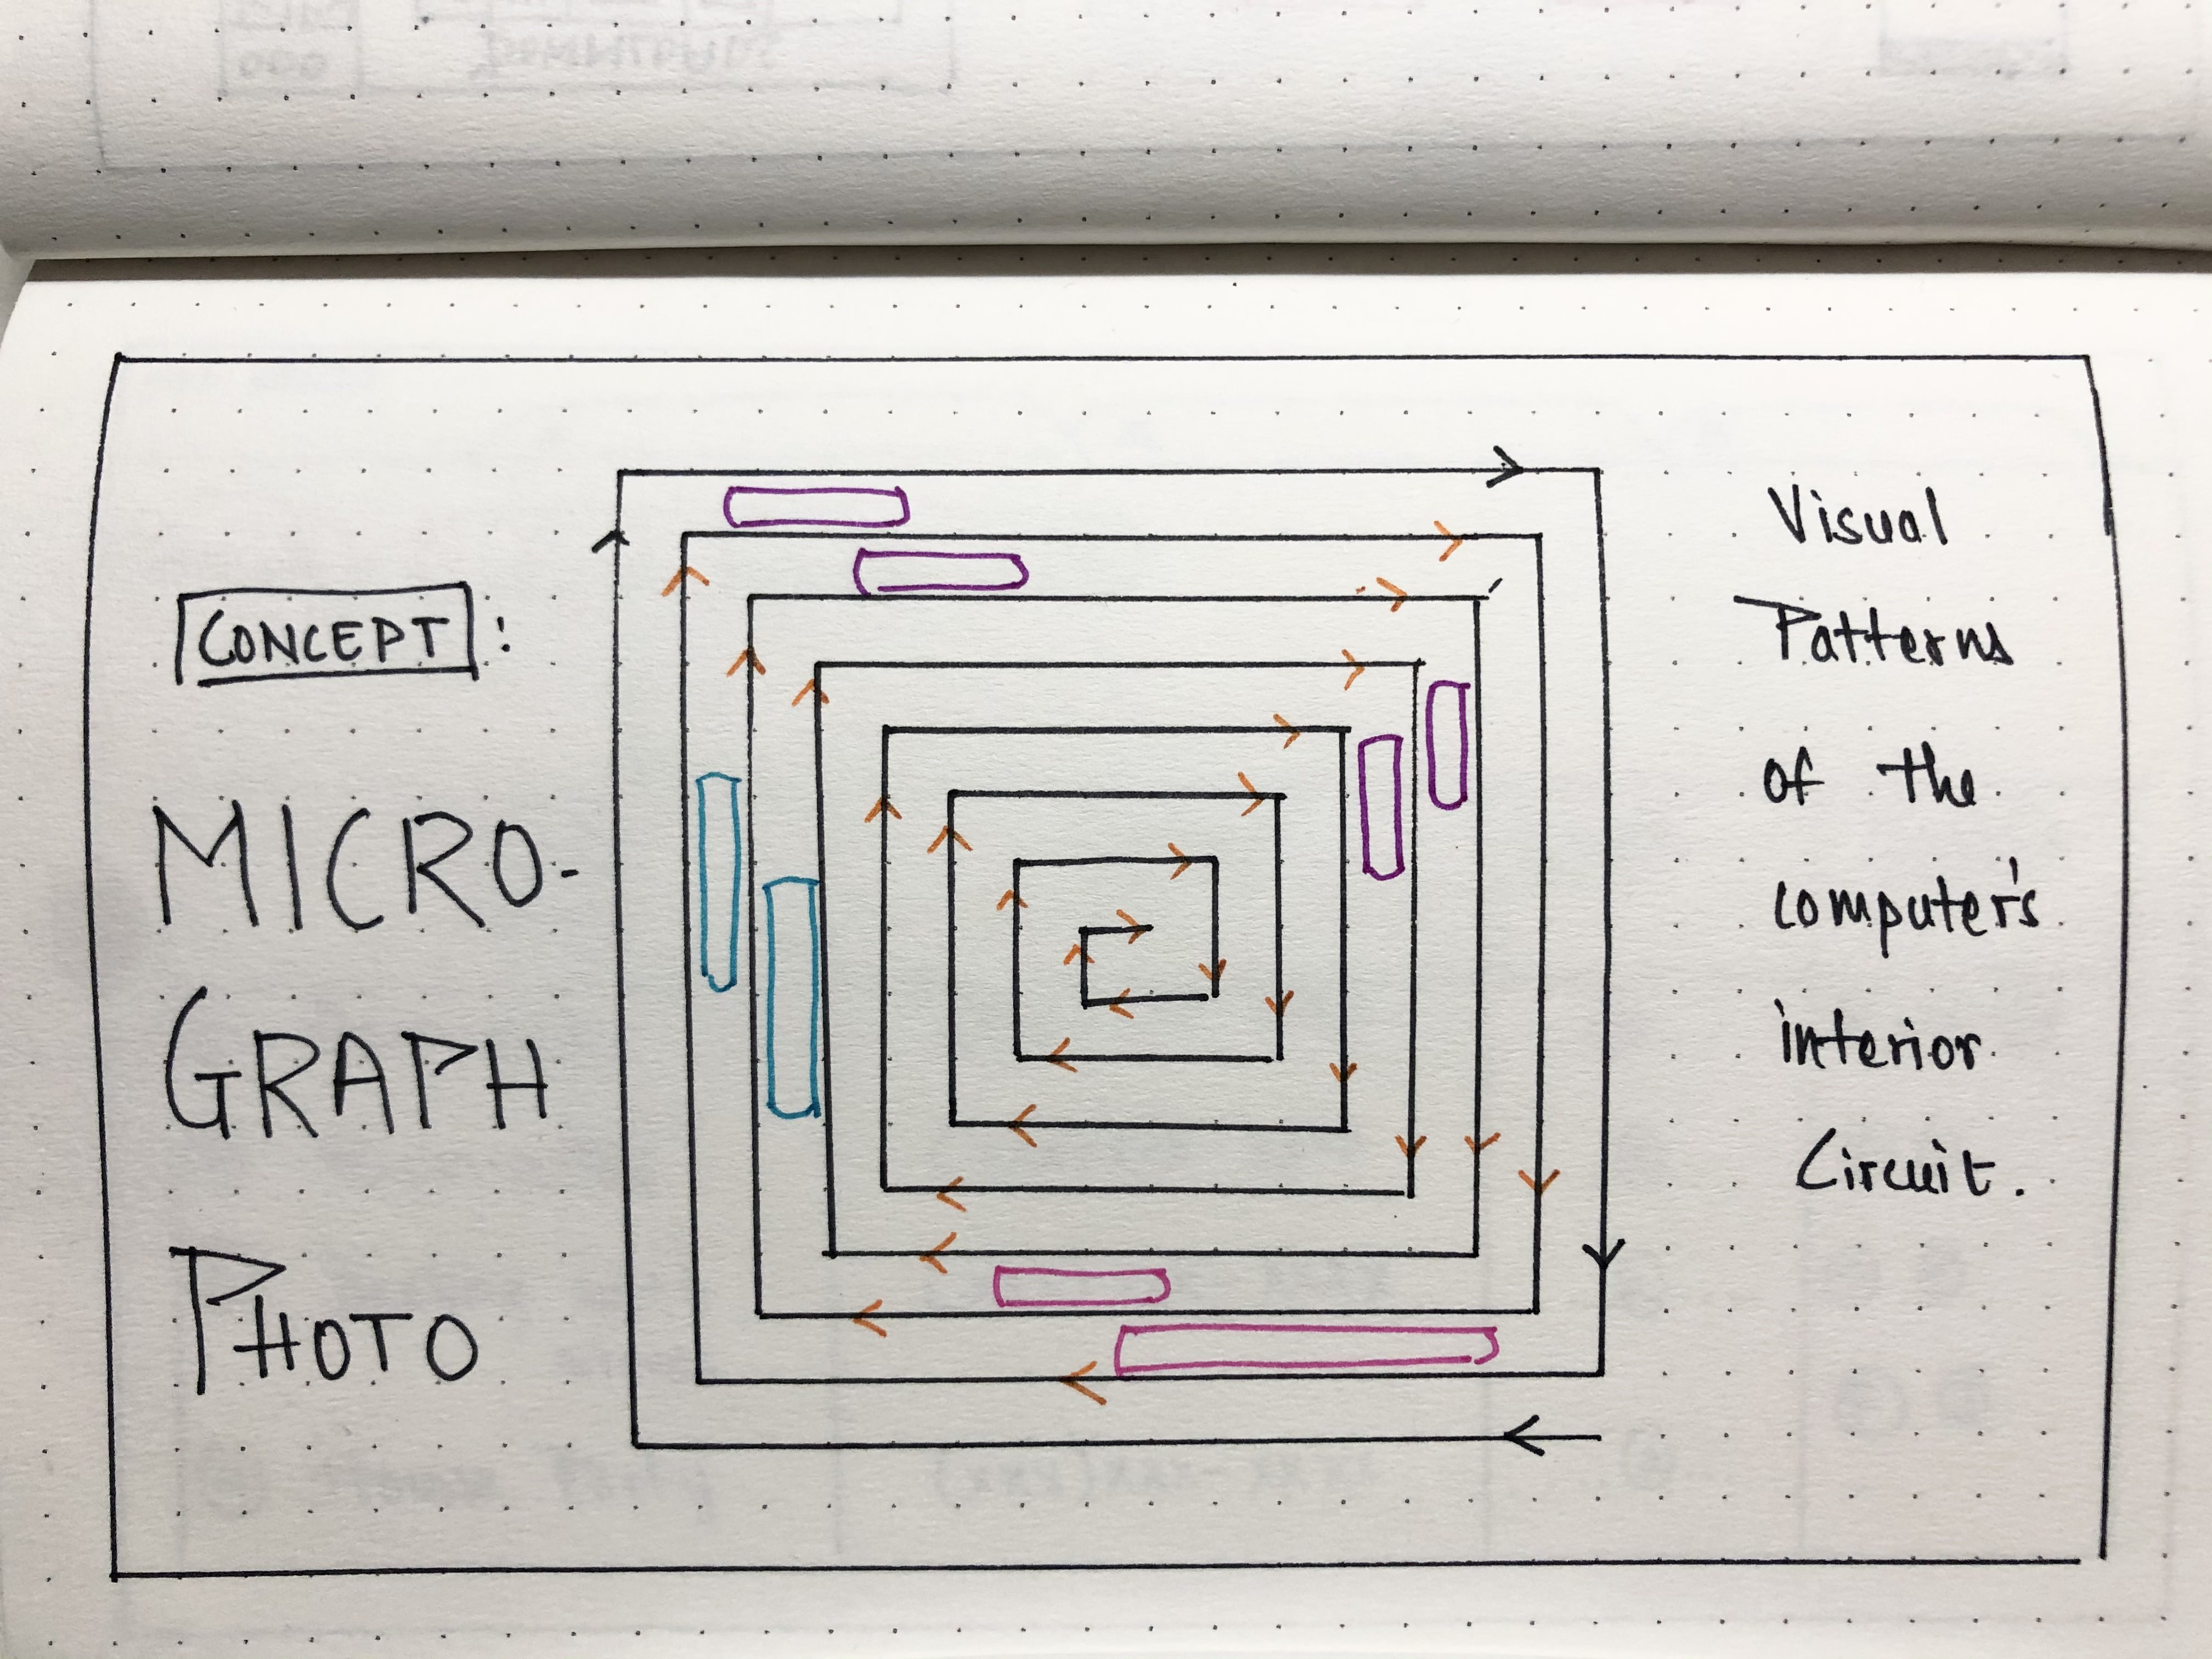 CONCEPT:
MICRO-
GRAPH
PHOTO
Visual
Patterns
of the
computer's
interior
Circuit.